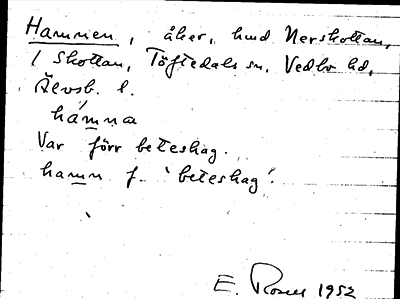 Hammen, åker, hmd Nerskottan,
1 Skottan, Töftedals sn, Vedbo hd,
Älvsb. l.
hámna
Var förr beteshag.
hamn f. 'beteshag'.
E. Rosell 1952